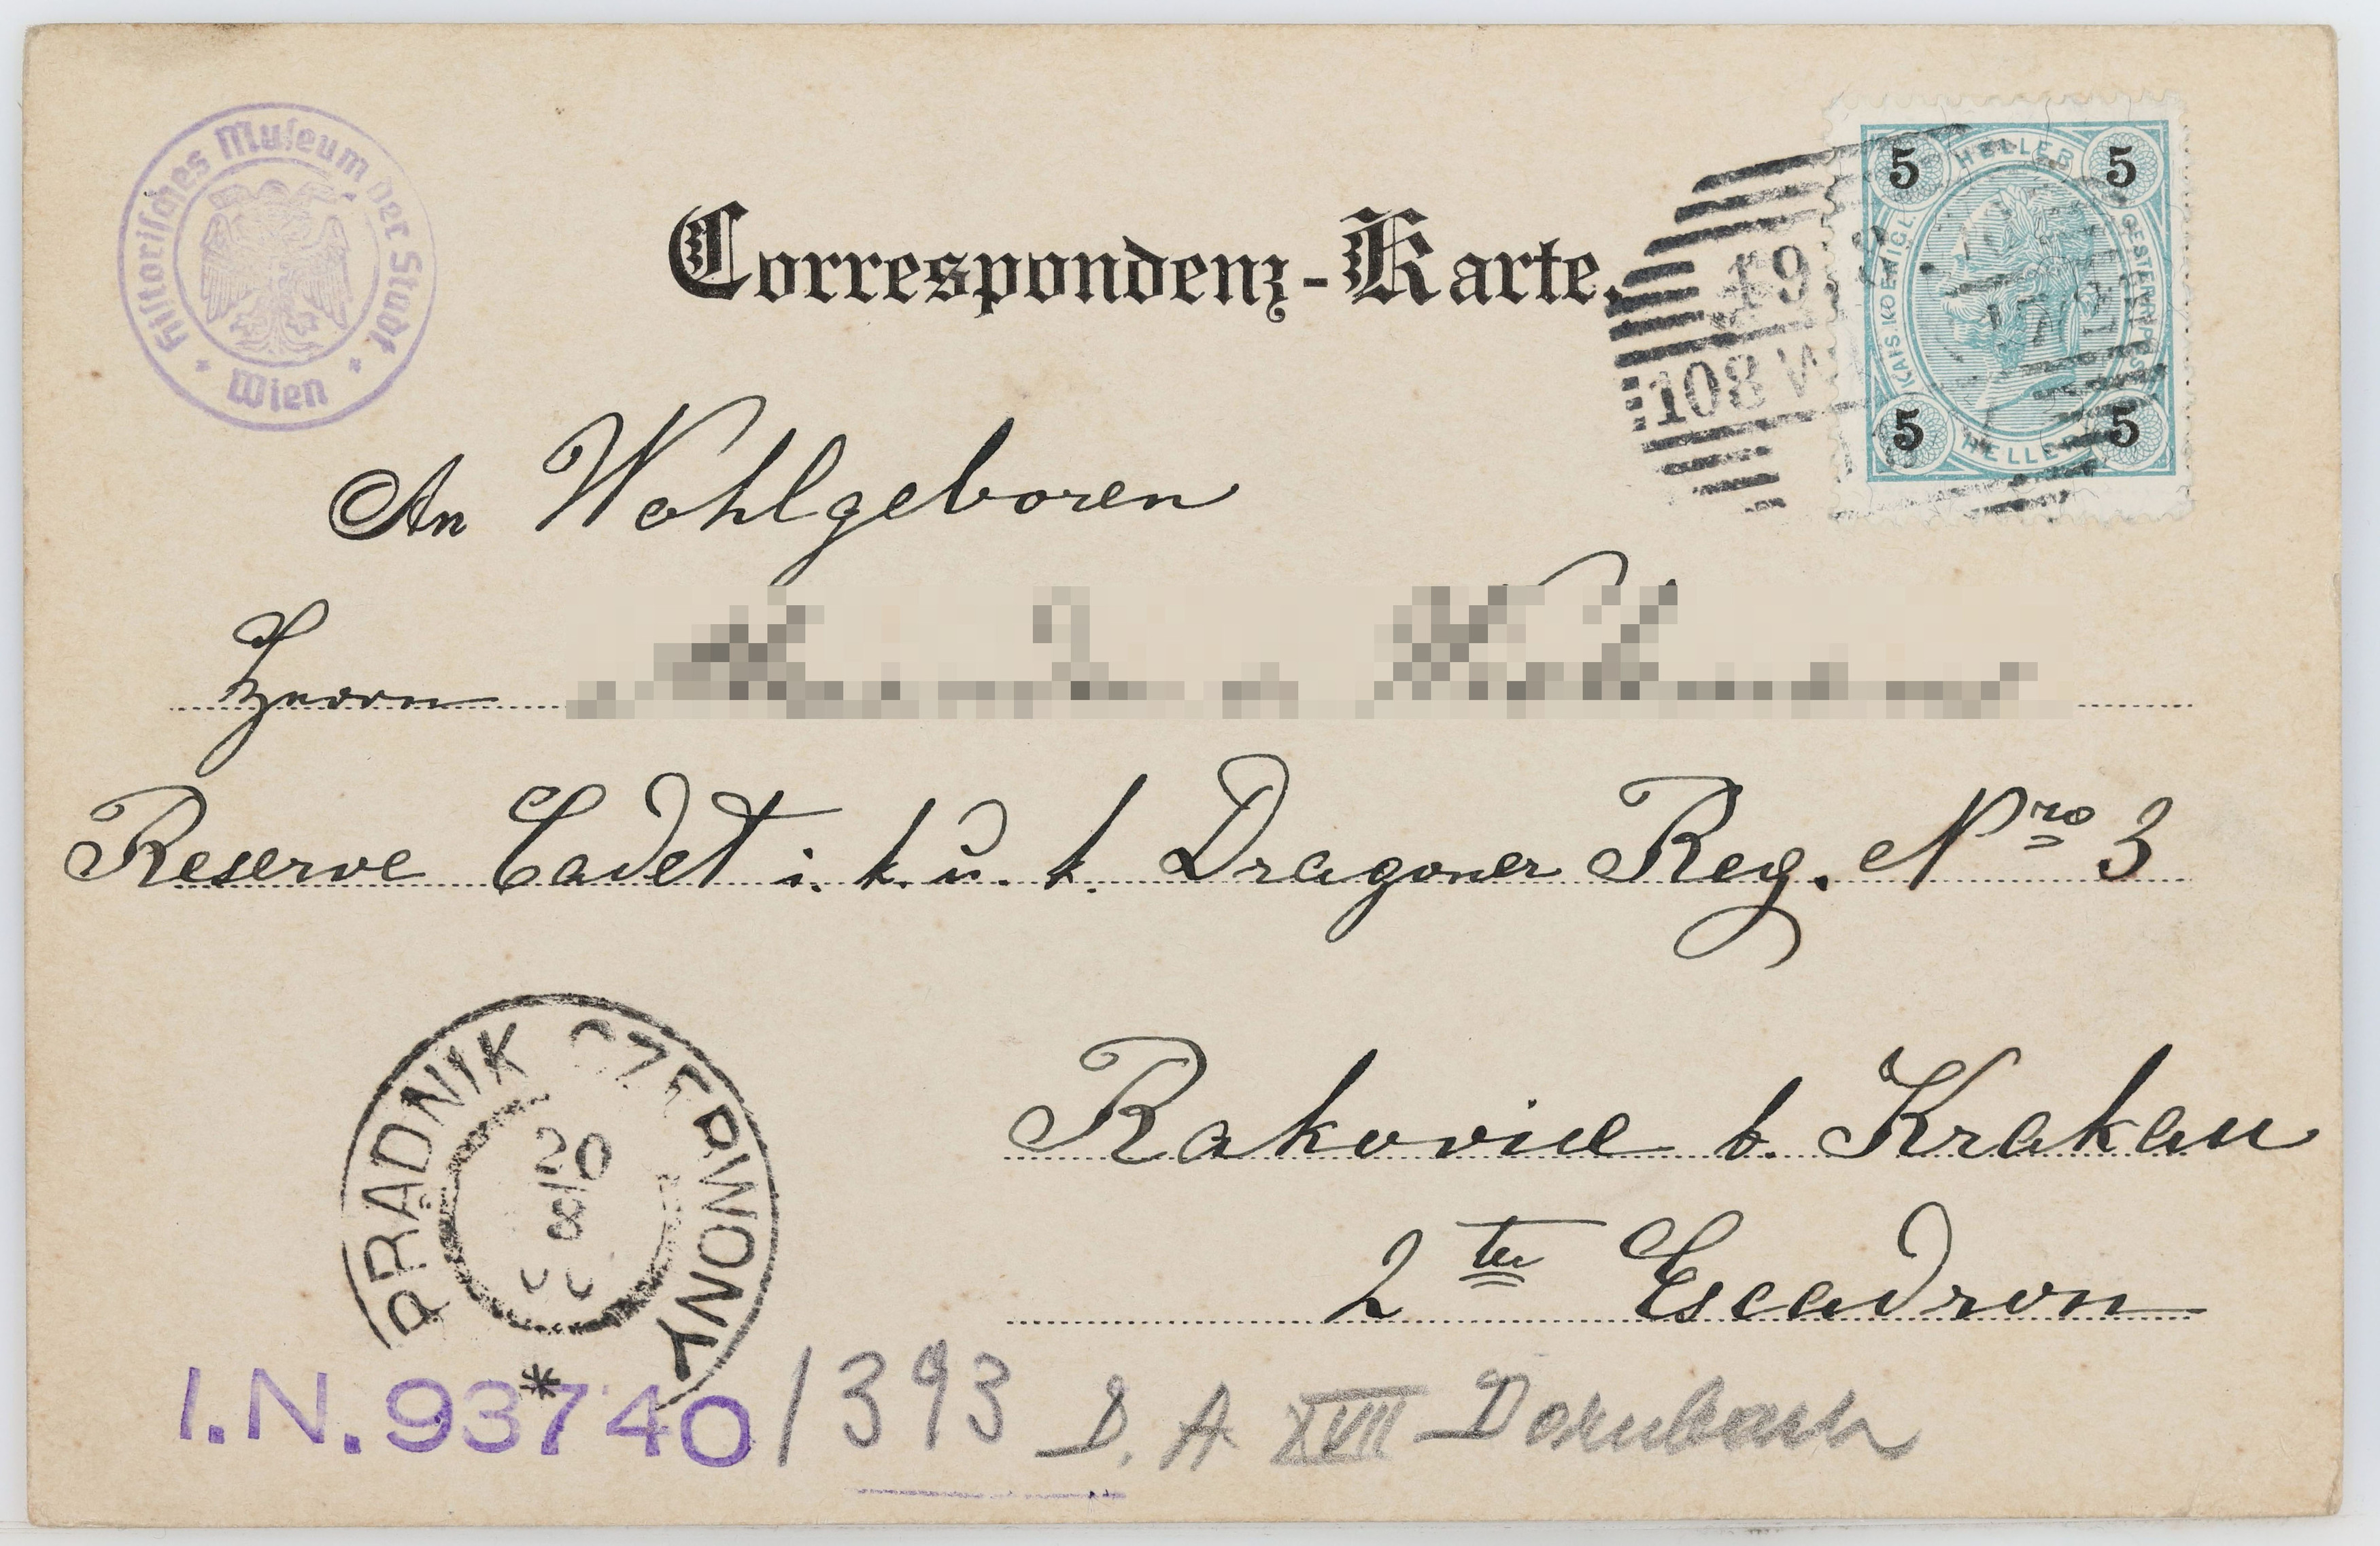 Historisches Museum der Stadt
* Wien *
Correspondenz-Karte.
5 HELLER 5
KAIS. KOENIGL. OESTERR. POST
5 HELLER 5
49
108 W
An Wohlgeboren
Herrn
Reserve Cadet i. k. u. k. Dragoner Reg. Nro 3
PRĄDNIK CZERWONY
20
8
*
Rakovice b. Krakau
2ten Escadron
I.N. 93740 / 393 D. A XVII Dornbach